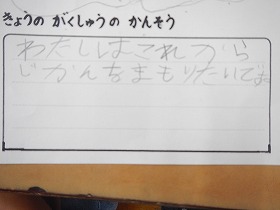 きょうの がくしゅうの かんそう
わたしはこれから
じかんをまもりたいです